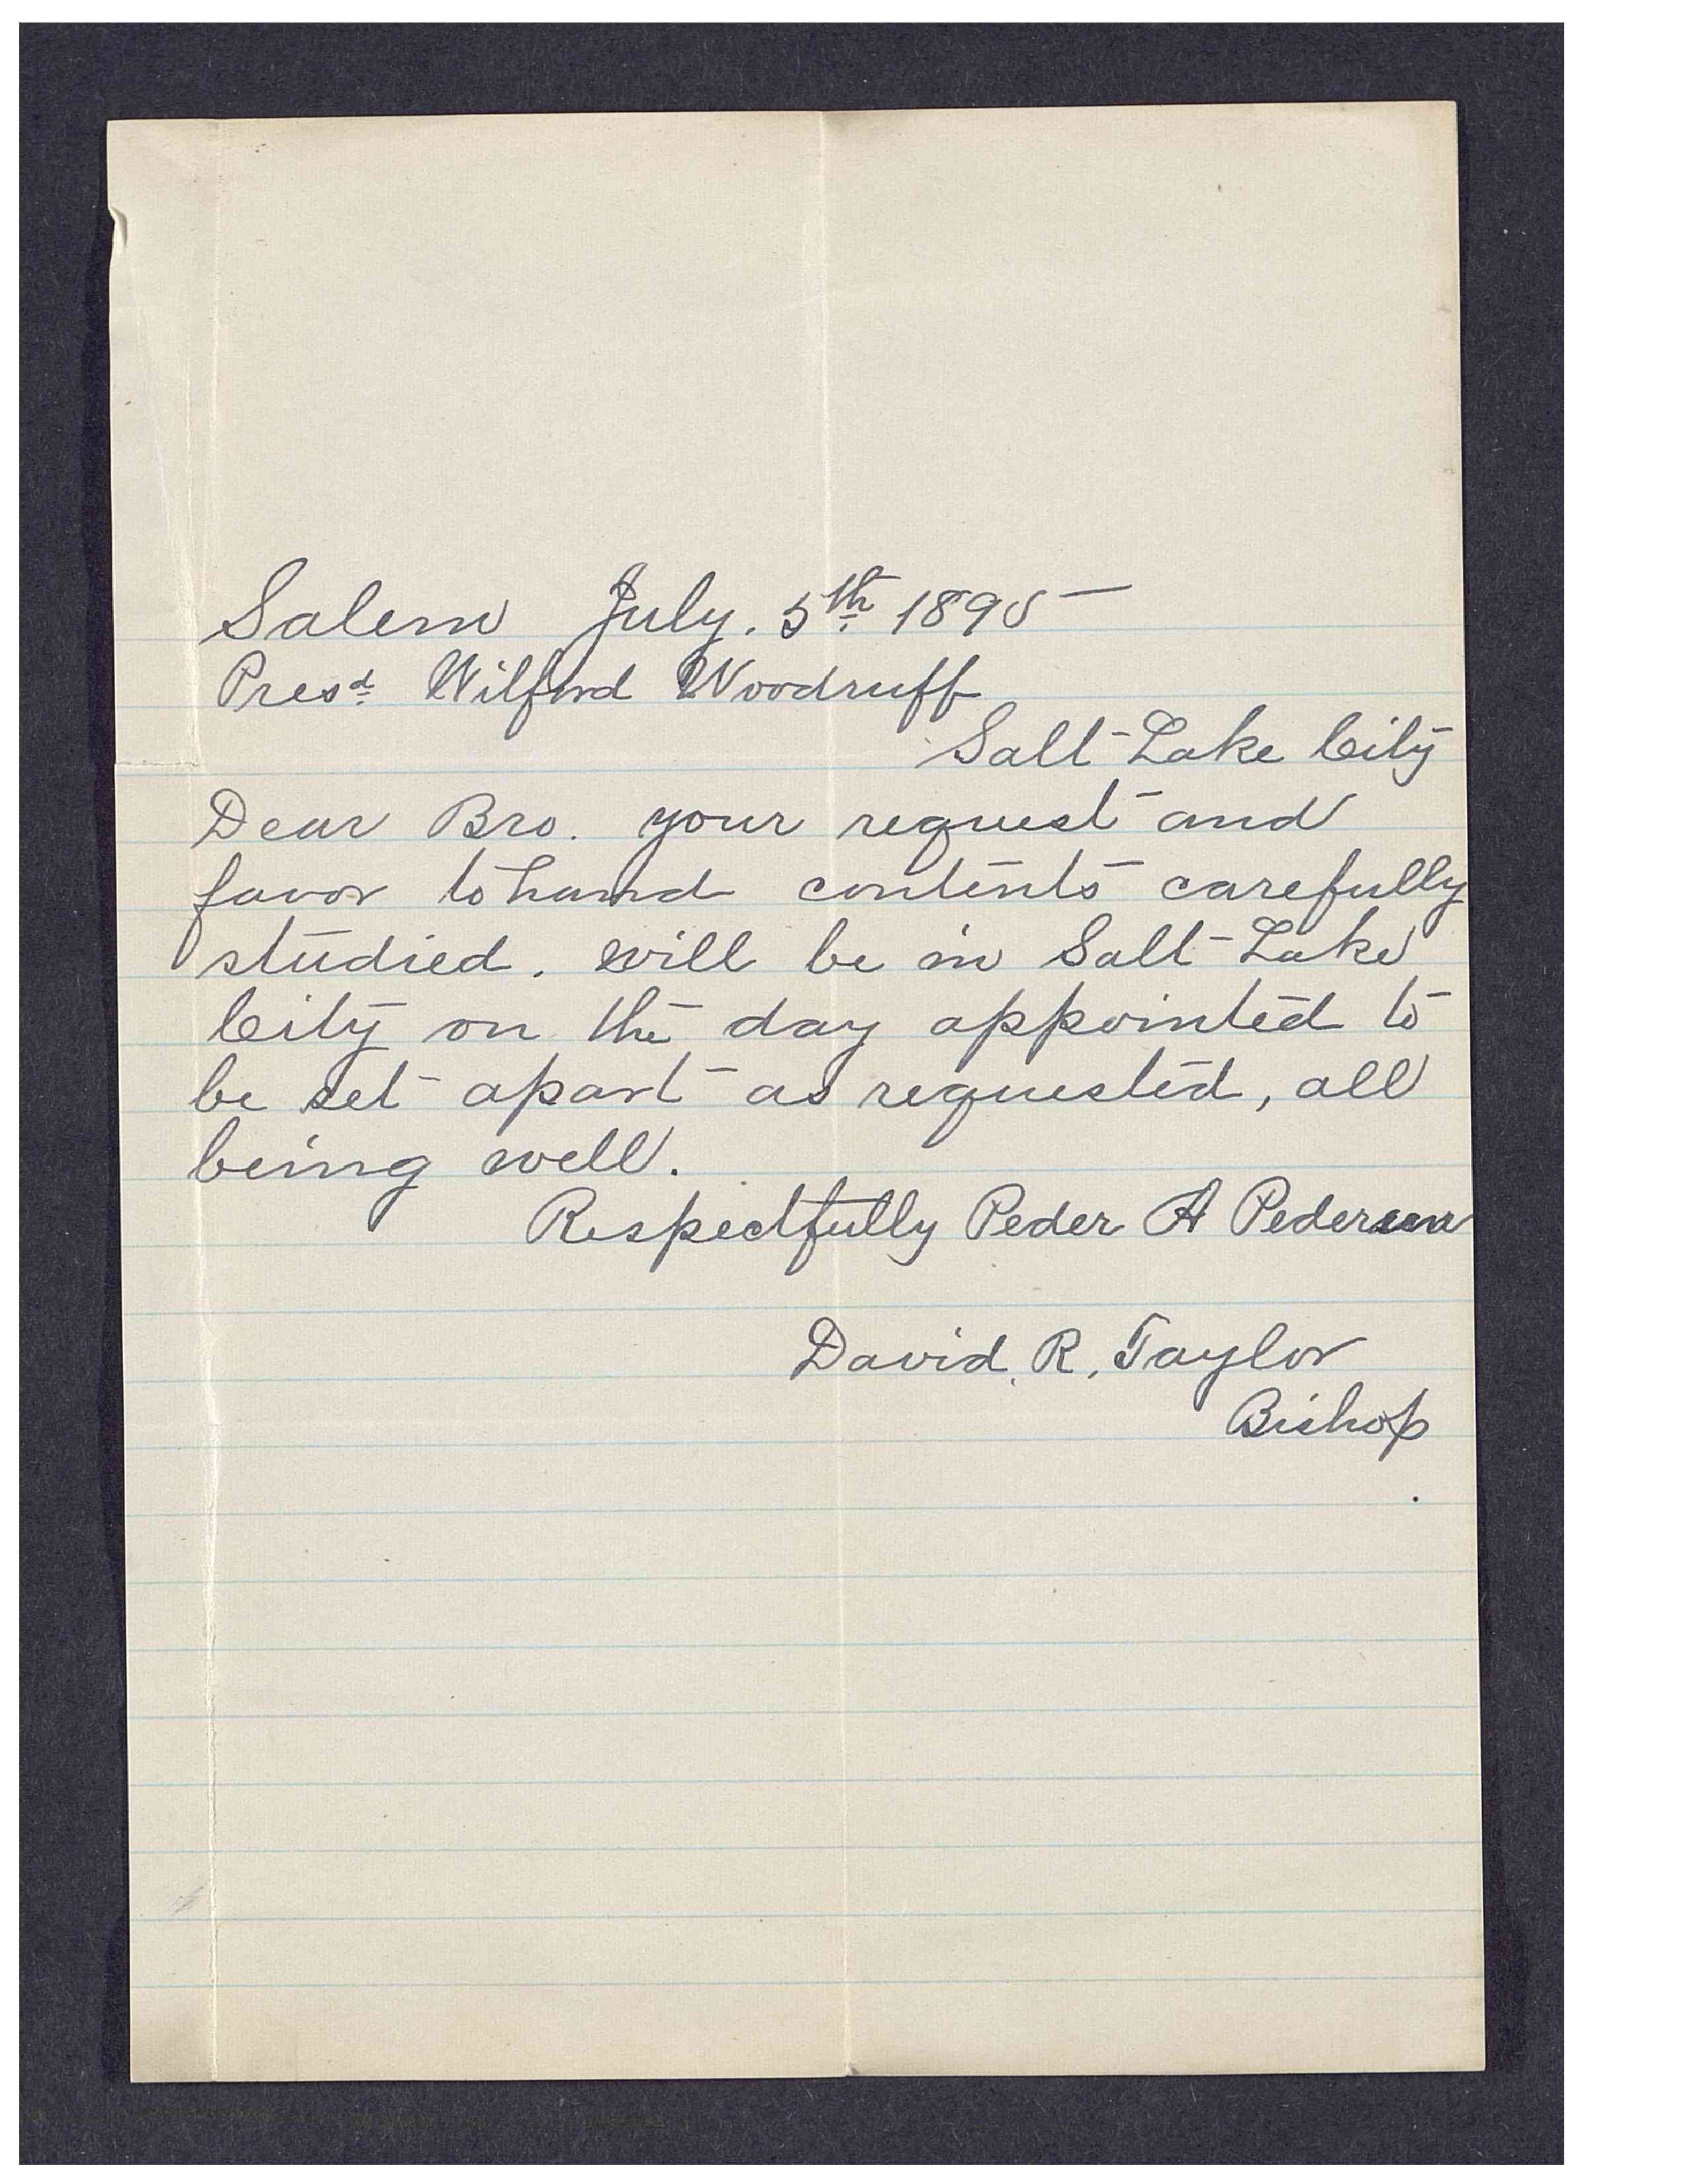 Salem July. 5th 1895
Presd. Wilford Woodruff
Salt Lake City
Dear Bro. your request and
favor to hand contents carefully
studied. will be in Salt Lake
City on the day appointed to
be set apart as requested, all
being well.
Respectfully Peder A Pedersen
David. R. Taylor
Bishop